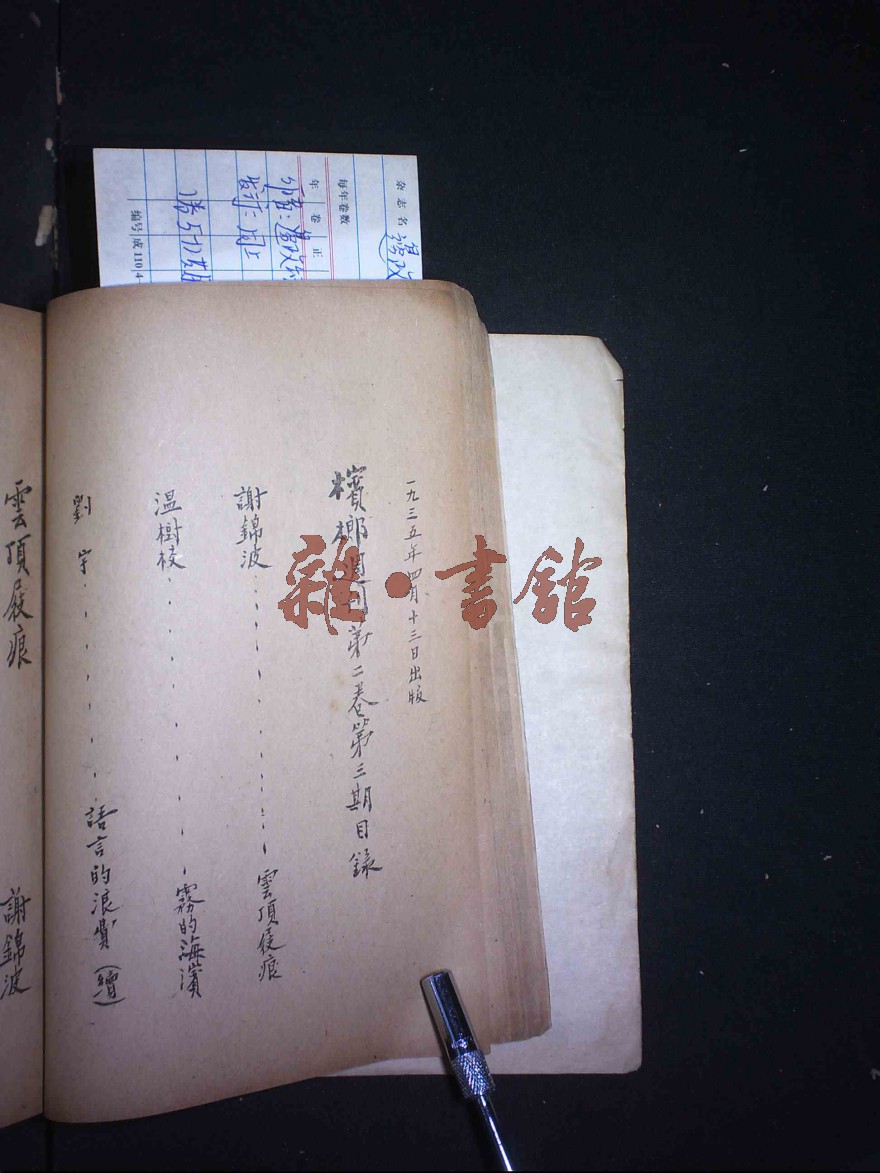 杂志名
每年卷数
年 卷 正
编号 成110 4
一九三五年四月十三日出版
檳榔週刊第二卷第三期目錄
謝錦波 雲頂屐痕
温樹枝 霧的海濱
劉宇 語言的浪費(續)
雲頂屐痕 謝錦波
雜·書館